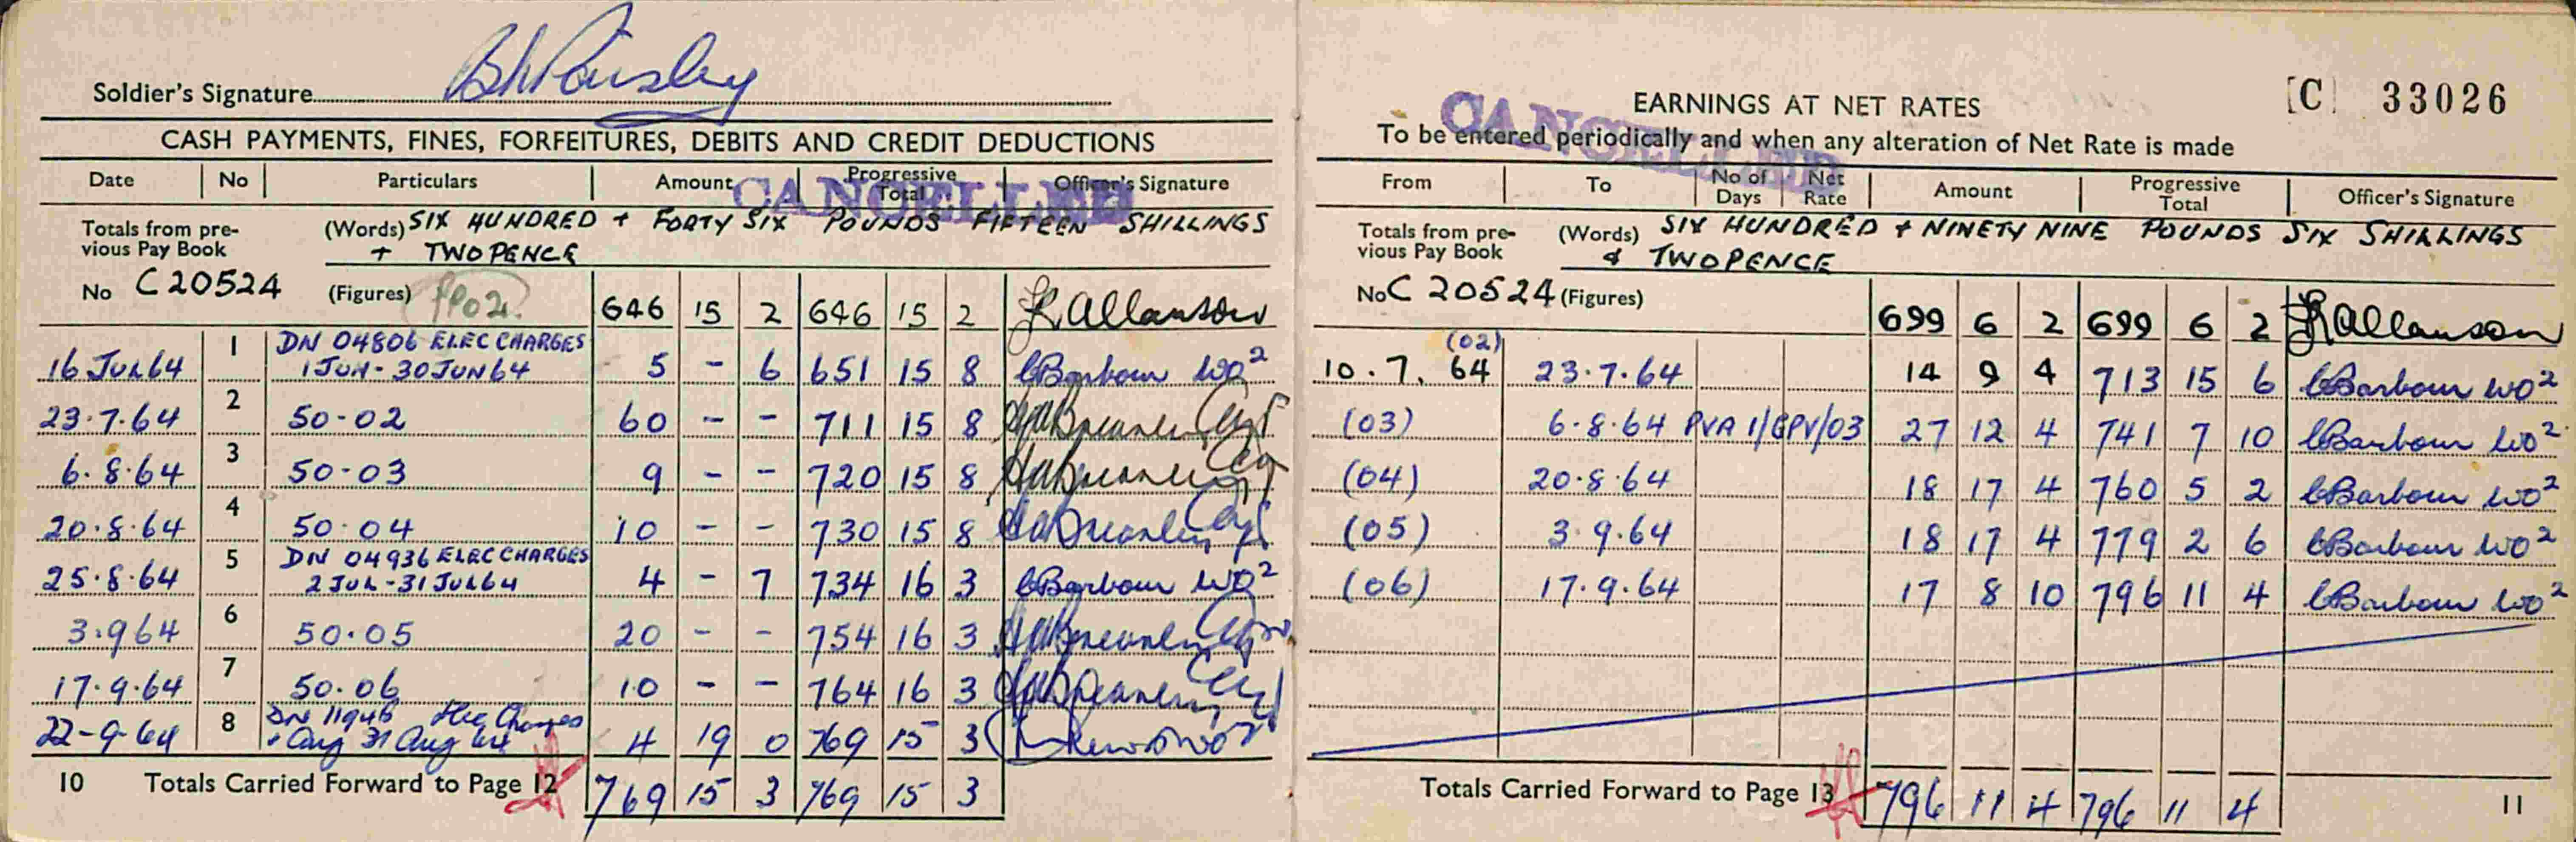 Soldier's Signature
CASH PAYMENTS, FINES, FORFEITURES, DEBITS AND CREDIT DEDUCTIONS
CANCELLED
Date No Particulars Amount Progressive Total Officer's Signature
Totals from pre-vious Pay Book (Words) SIX HUNDRED + FORTY SIX POUNDS FIFTEEN SHILLINGS
+ TWOPENCE
No C 20524 (Figures) PP02. 646 15 2 646 15 2 Allanson
16 JUL 64 1 DN 04806 ELEC CHARGES
1 JUN - 30 JUN 64 5 - 6 651 15 8 Barbour WO2
23.7.64 2 50-02 60 - - 711 15 8
6.8.64 3 50-03 9 - - 720 15 8
20.8.64 4 50.04 10 - - 730 15 8
25.8.64 5 DN 04936 ELEC CHARGES
2 JUL - 31 JUL 64 4 - 7 734 16 3 Barbour WO2
3.9.64 6 50.05 20 - - 754 16 3
17.9.64 7 50.06 10 - - 764 16 3
22-9-64 8 DN 11946 Elec Charges
Aug 31 Aug 64 4 19 0 769 15 3
10 Totals Carried Forward to Page 12 769 15 3 769 15 3
[C] 33026
EARNINGS AT NET RATES
To be entered periodically and when any alteration of Net Rate is made
CANCELLED
From To No of Days Net Rate Amount Progressive Total Officer's Signature
Totals from pre-vious Pay Book (Words) SIX HUNDRED + NINETY NINE POUNDS SIX SHILLINGS
& TWOPENCE
No C 20524 (Figures) 699 6 2 699 6 2 Allanson
(02)
10.7.64 23.7.64 14 9 4 713 15 6 Barbour WO2
(03) 6.8.64 PVA 1/GPV/03 27 12 4 741 7 10 Barbour WO2
(04) 20.8.64 18 17 4 760 5 2 Barbour WO2
(05) 3.9.64 18 17 4 779 2 6 Barbour WO2
(06) 17.9.64 17 8 10 796 11 4 Barbour WO2
Totals Carried Forward to Page 13 796 11 4 796 11 4
11